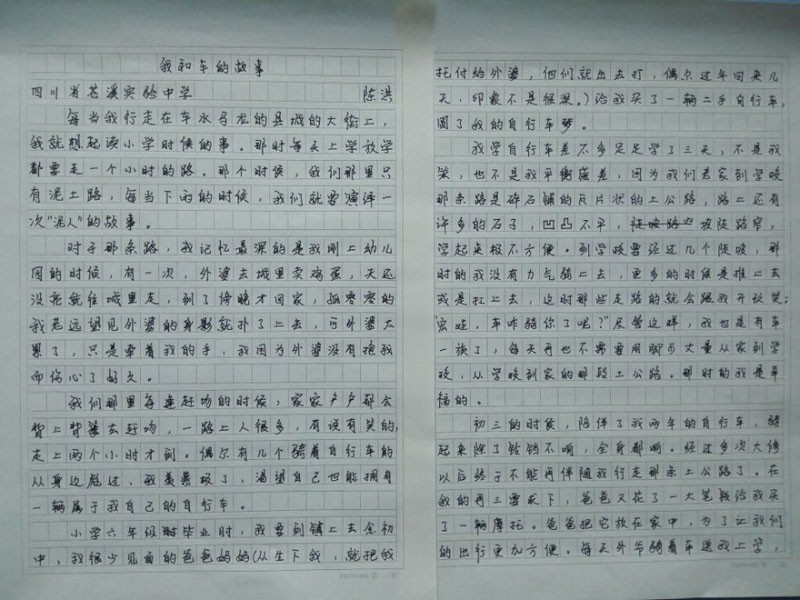 我和车的故事
四川省苍溪实验中学 陈洪
每当我行走在车水马龙的县城的大街上，
我就想起读小学时候的事。那时每天上学放学
都要走一个小时的路。那个时候，我们那里只
有泥土路，每当下雨的时候，我们就要演译一
次“泥人”的故事。
对于那条路，我记忆最深的是我刚上幼儿
园的时候，有一次，外婆去城里卖鸡蛋，天还
没亮就往城里走，到了傍晚才回家，孤零零的
我老远望见外婆的身影就扑了上去，可外婆太
累了，只是牵着我的手，我因为外婆没有抱我
而伤心了好久。
我们那里每逢赶场的时候，家家户户都会
背上背篓去赶场，一路上人很多，有说有笑的，
走上两个小时才到。偶尔有几个骑着自行车的
从身边飚过，我羡慕极了，渴望自己也能拥有
一辆属于我自己的自行车。
小学六年级毕业时，我要到镇上去念初
中，我很少见面的爸爸妈妈（从生下我，就把我
托付给外婆，他们就出去打，偶尔过年回来几
天，印象不是很深。）给我买了一辆二手自行车，
圆了我的自行车梦。
我学自行车差不多足足学了三天，不是我
笨，也不是我平衡感差，因为我们老家到学校
那条路是碎石铺的瓦片状的土公路，路上还有
许多的石子，凹凸不平，坡陡路窄，
学起来极不方便。到学校要经过几个陡坡，那
时的我没有力气骑上去，更多的时候是推上去
或是扛上去，这时那些走路的就会跟我开玩笑：
车咋骑你了呢？”尽管这样，我也是有车
一族了，每天再也不需要用脚步丈量从家到学
校，从学校到家的那段土公路。那时的我是幸
福的。
初三的时候，陪伴了我两年的自行车，骑
起来除了铃铛不响，全身都响。经过多次大修
以后终于不能再伴随我行走那条土公路了。在
我的再三要求下，爸爸又花了一大笔钱给我买
了一辆摩托。爸爸把它放在家中，为了让我们
的出行更加方便。每天外爷骑着车送我上学，